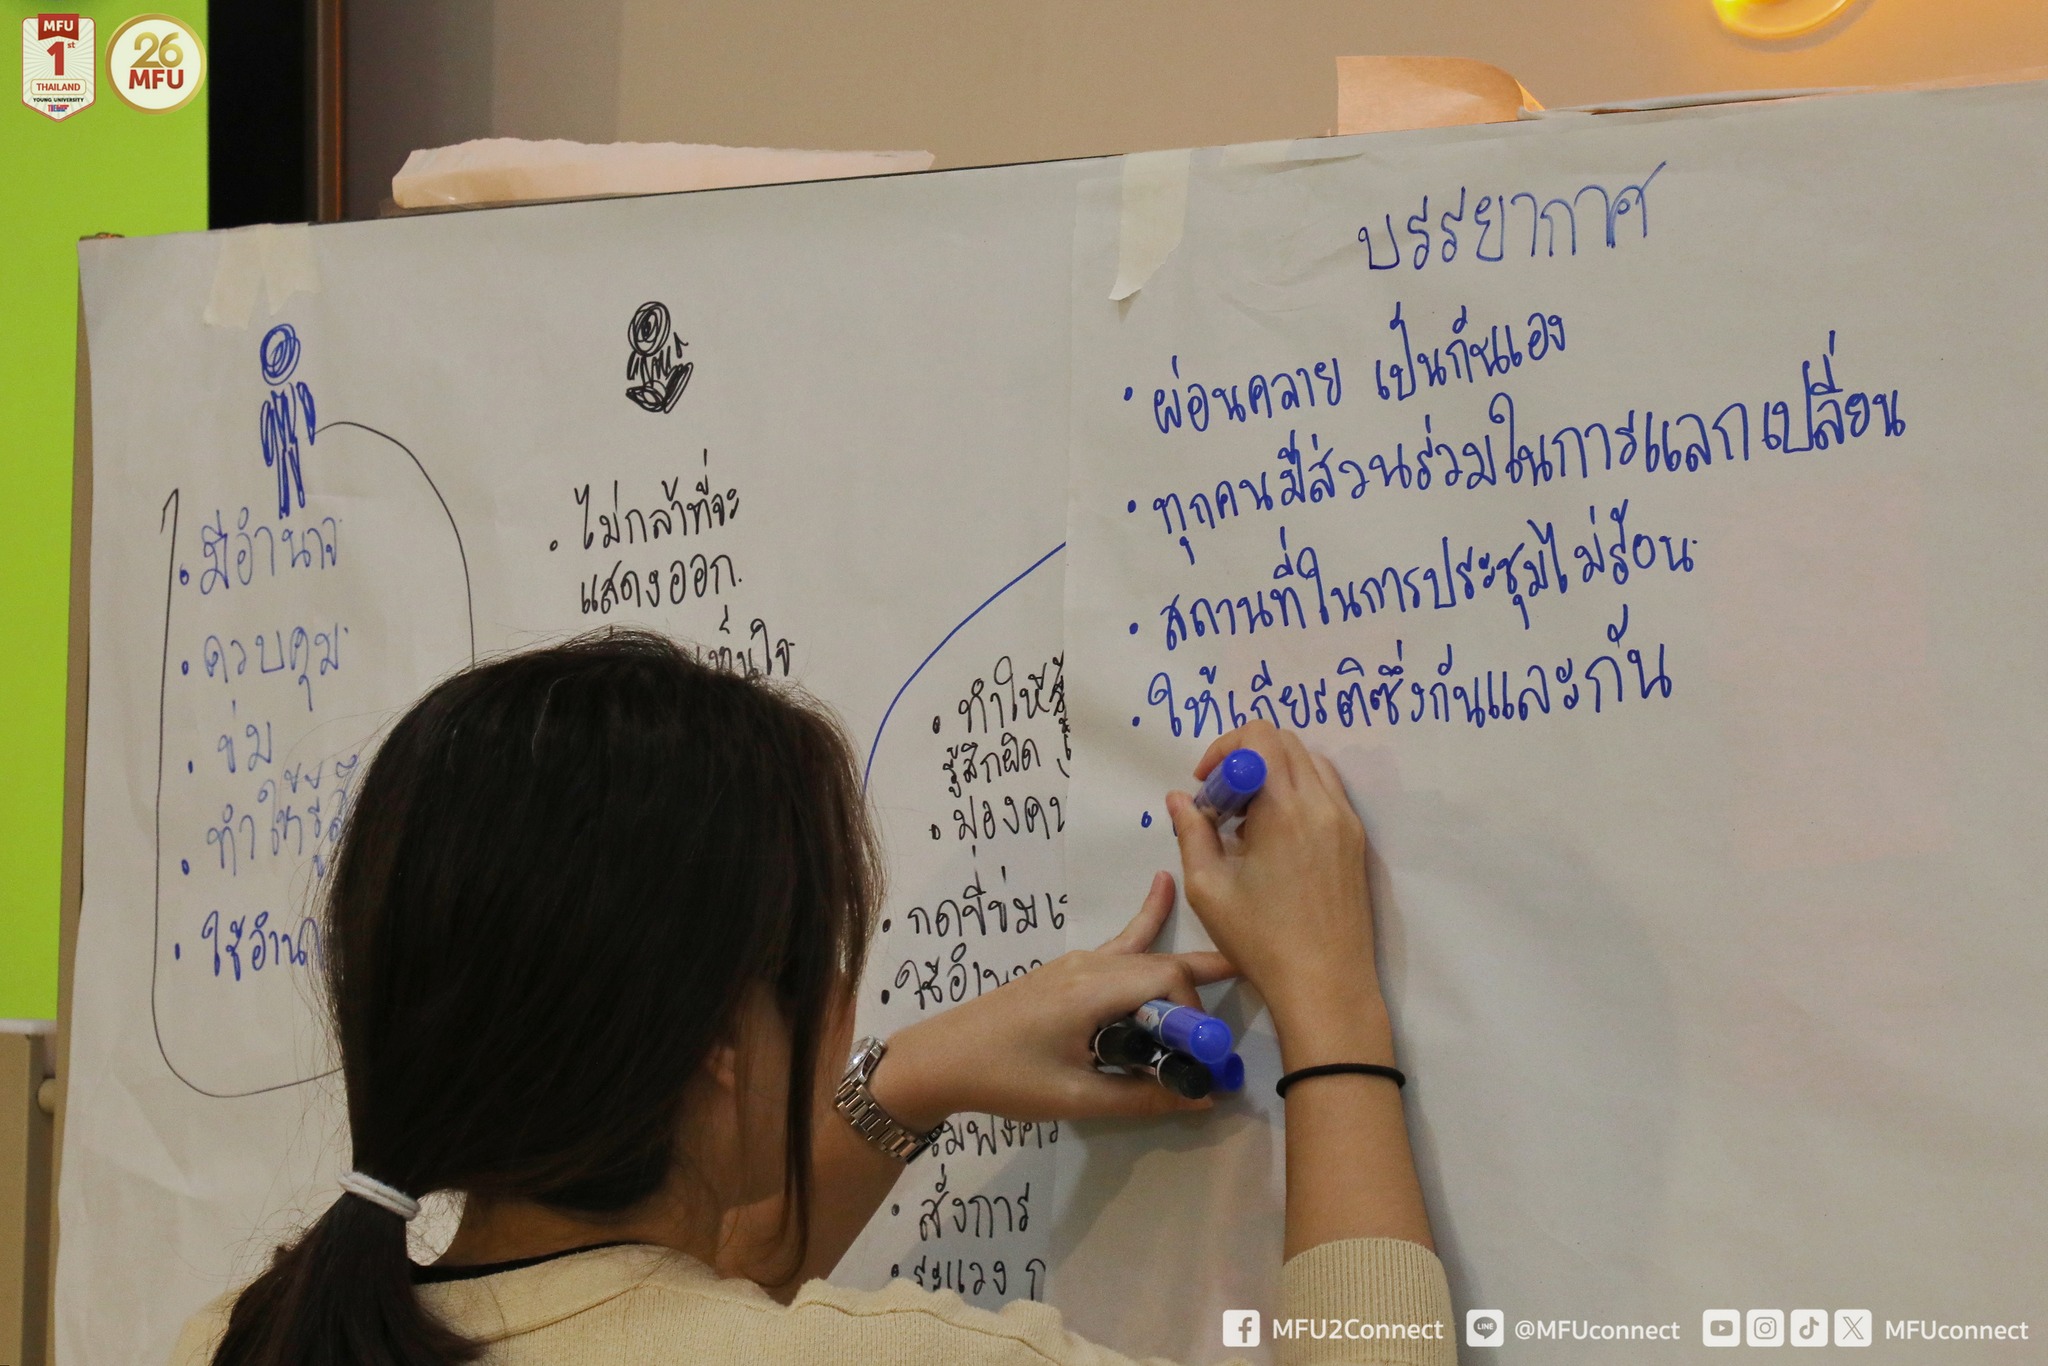 MFU
1st
THAILAND
YOUNG UNIVERSITY
26
MFU
บรรียากาศ
• ผ่อนคลาย เป็นกันเอง
• ทุกคนมีส่วนร่วมในการแลกเปลี่ยน
• สถานที่ในการประชุมไม่ร้อน
• ให้เกียรติซึ่งกันและกัน
•
• มีอำนาจ
• ควบคุม
• ข่ม
• ทำให้รู้สึ
• ใช้อำนา
• ไม่กล้าที่จะ
แสดงออก.
• ทำให้รู้
รู้สึกผิด
• มองคน
• กดขี่ข่ม
• ใช้อำนา
• สั่งการ
• ระแวง ก
MFU2Connect
@MFUconnect
MFUconnect